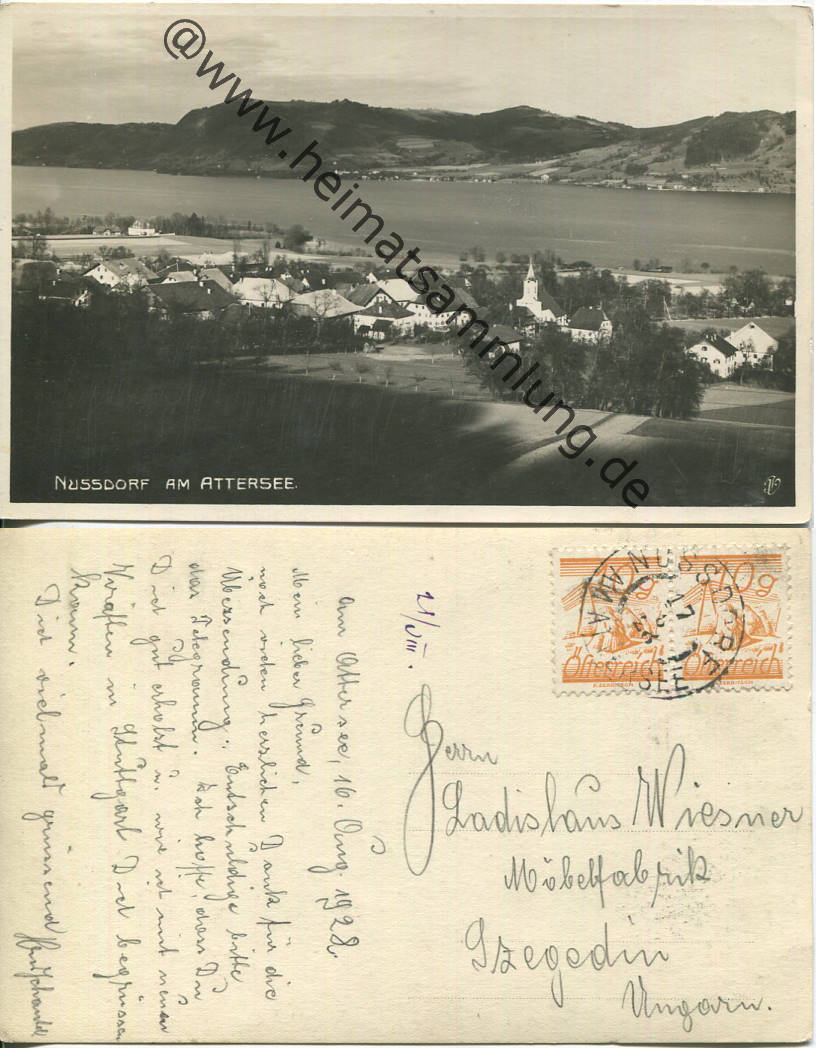 @www.heimatsammlung.de
NUSSDORF AM ATTERSEE.
10g 10g
Österreich Österreich
NUSSDORF AM ATTERSEE
21/VIII.
Herrn
Ladislaus Wiesner
Möbelfabrik
Szegedin
Ungarn.
Am Attersee, 16. Aug. 1928
Mein lieber Freund,
noch vielen herzlichen Dank für die
Übersendung. Entschuldige bitte
das Telegramm. Ich hoffe, dass Du
Dich gut erholst u. wie ich mit neuen
Kräften in Stuttgart Dich begrüssen
kann.
Dich vielmals grüssend